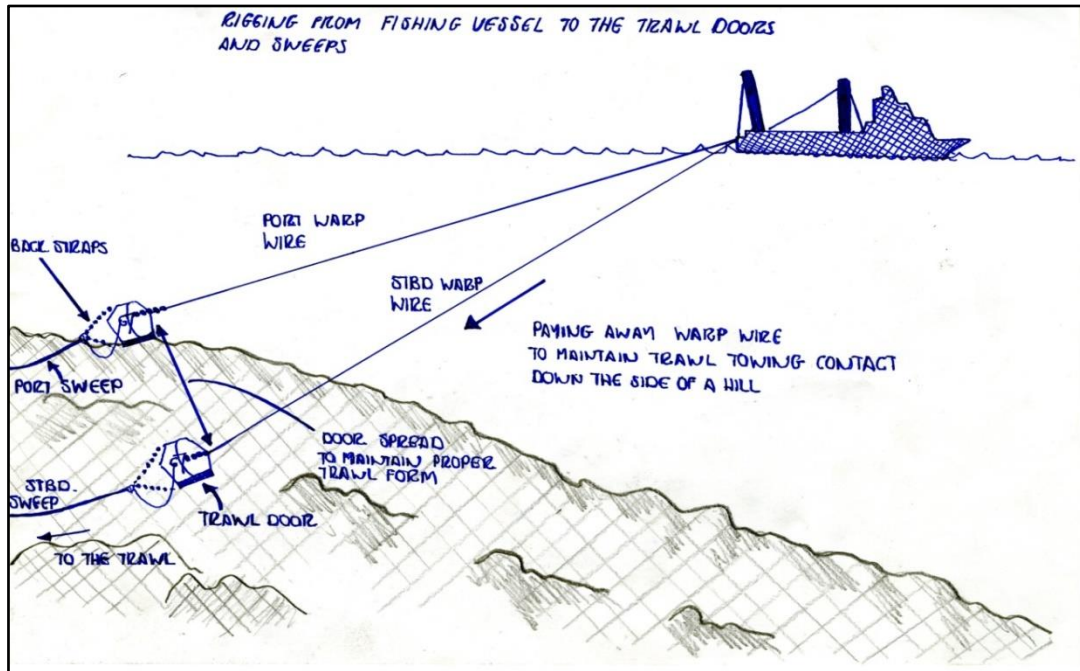 RIGGING FROM FISHING VESSEL TO THE TRAWL DOORS
AND SWEEPS
PORT WARP
WIRE
BACK STRAPS
STBD WARP
WIRE
PAYING AWAY WARP WIRE
TO MAINTAIN TRAWL TOWING CONTACT
DOWN THE SIDE OF A HILL
PORT SWEEP
DOOR SPREAD
TO MAINTAIN PROPER
TRAWL FORM
STBD.
SWEEP
TRAWL DOOR
TO THE TRAWL